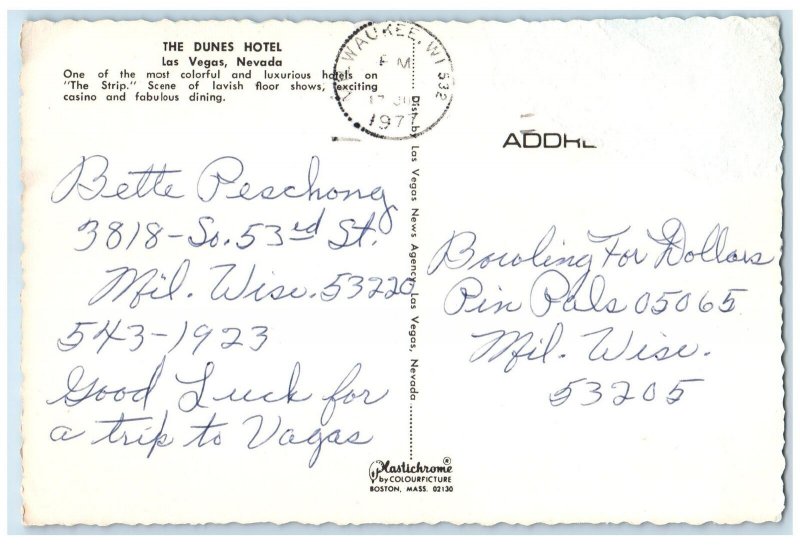 THE DUNES HOTEL
Las Vegas, Nevada
One of the most colorful and luxurious hotels on
"The Strip." Scene of lavish floor shows, exciting
casino and fabulous dining.
WAUKEE, WI 532
PM
17
1977
Bette Peschong
3818-So. 53rd St.
Mil. Wisc. 53220
543-1923
Good Luck for
a trip to Vagas
Dist. by Las Vegas News Agency, Las Vegas, Nevada
Plastichrome®
by COLOURPICTURE
BOSTON, MASS. 02130
ADDRE
Bowling For Dollars
Pin Pals 05065
Mil. Wisc.
53205